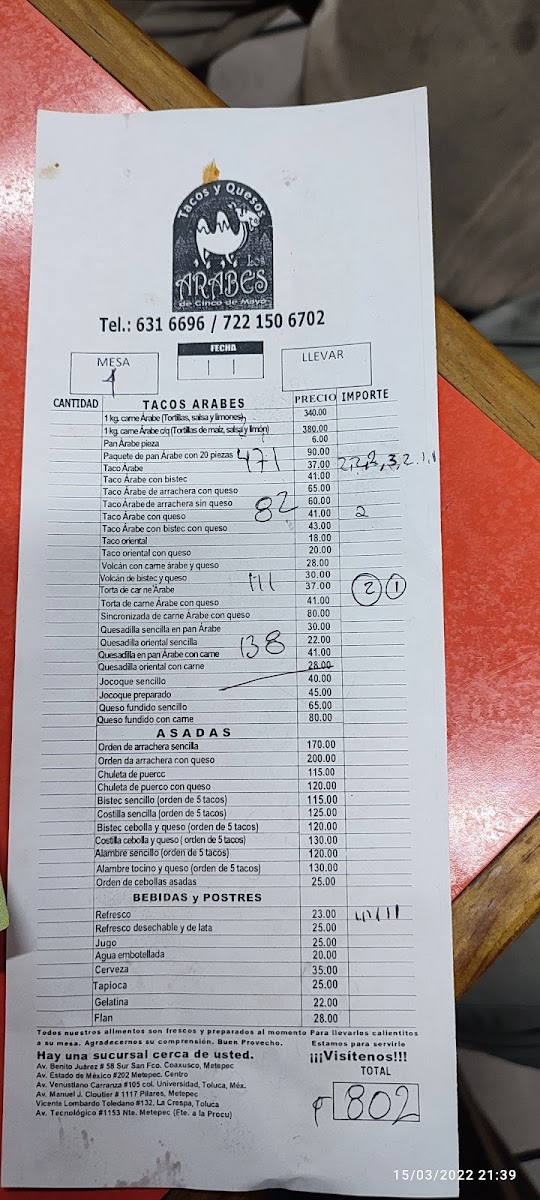 Tacos y Quesos
Los
ARABES
de Cinco de Mayo
Tel.: 631 6696 / 722 150 6702
MESA FECHA LLEVAR
1
CANTIDAD TACOS ARABES PRECIO IMPORTE
1 kg. carne Árabe (Tortillas, salsa y limones) 340.00
1 kg. carne Árabe c/q (Tortillas de maíz, salsa y limón) 380.00
Pan Árabe pieza 6.00
Paquete de pan Árabe con 20 piezas 90.00
Taco Árabe 471 37.00 2,2,2,3,2,1,1
Taco Árabe con bistec 41.00
Taco Árabe de arrachera con queso 65.00
Taco Árabe de arrachera sin queso 60.00
Taco Árabe con queso 82 41.00 2
Taco Árabe con bistec con queso 43.00
Taco oriental 18.00
Taco oriental con queso 20.00
Volcán con carne árabe y queso 28.00
Volcán de bistec y queso 30.00
Torta de carne Árabe 111 37.00 2 1
Torta de carne Árabe con queso 41.00
Sincronizada de carne Árabe con queso 80.00
Quesadilla sencilla en pan Árabe 30.00
Quesadilla oriental sencilla 22.00
Quesadilla en pan Árabe con carne 138 41.00
Quesadilla oriental con carne 28.00
Jocoque sencillo 40.00
Jocoque preparado 45.00
Queso fundido sencillo 65.00
Queso fundido con carne 80.00
ASADAS
Orden de arrachera sencilla 170.00
Orden da arrachera con queso 200.00
Chuleta de puercc 115.00
Chuleta de puerco con queso 120.00
Bistec sencillo (orden de 5 tacos) 115.00
Costilla sencilla (orden de 5 tacos) 125.00
Bistec cebolla y queso (orden de 5 tacos) 120.00
Costilla cebolla y queso ( orden de 5 tacos) 130.00
Alambre sencillo (orden de 5 tacos) 120.00
Alambre tocino y queso (orden de 5 tacos) 130.00
Orden de cebollas asadas 25.00
BEBIDAS y POSTRES
Refresco 23.00
Refresco desechable y de lata 25.00
Jugo 25.00
Agua embotellada 20.00
Cerveza 35.00
Tapioca 25.00
Gelatina 22.00
Flan 28.00
Todos nuestros alimentos son frescos y preparados al momento Para llevarlos calientitos
a su mesa. Agradecemos su comprensión. Buen Provecho. Estamos para servirle
Hay una sucursal cerca de usted. ¡¡¡Visítenos!!!
Av. Benito Juárez # 58 Sur San Fco. Coaxusco, Metepec TOTAL
Av. Estado de México #202 Metepec. Centro
Av. Venustiano Carranza #105 col. Universidad, Toluca, Méx.
Av. Manuel J. Cloutier # 1117 Pilares, Metepec
Vicente Lombardo Toledano #132, La Crespa, Toluca
Av. Tecnológico #1153 Nte. Metepec (Fte. a la Procu)
802
15/03/2022 21:39